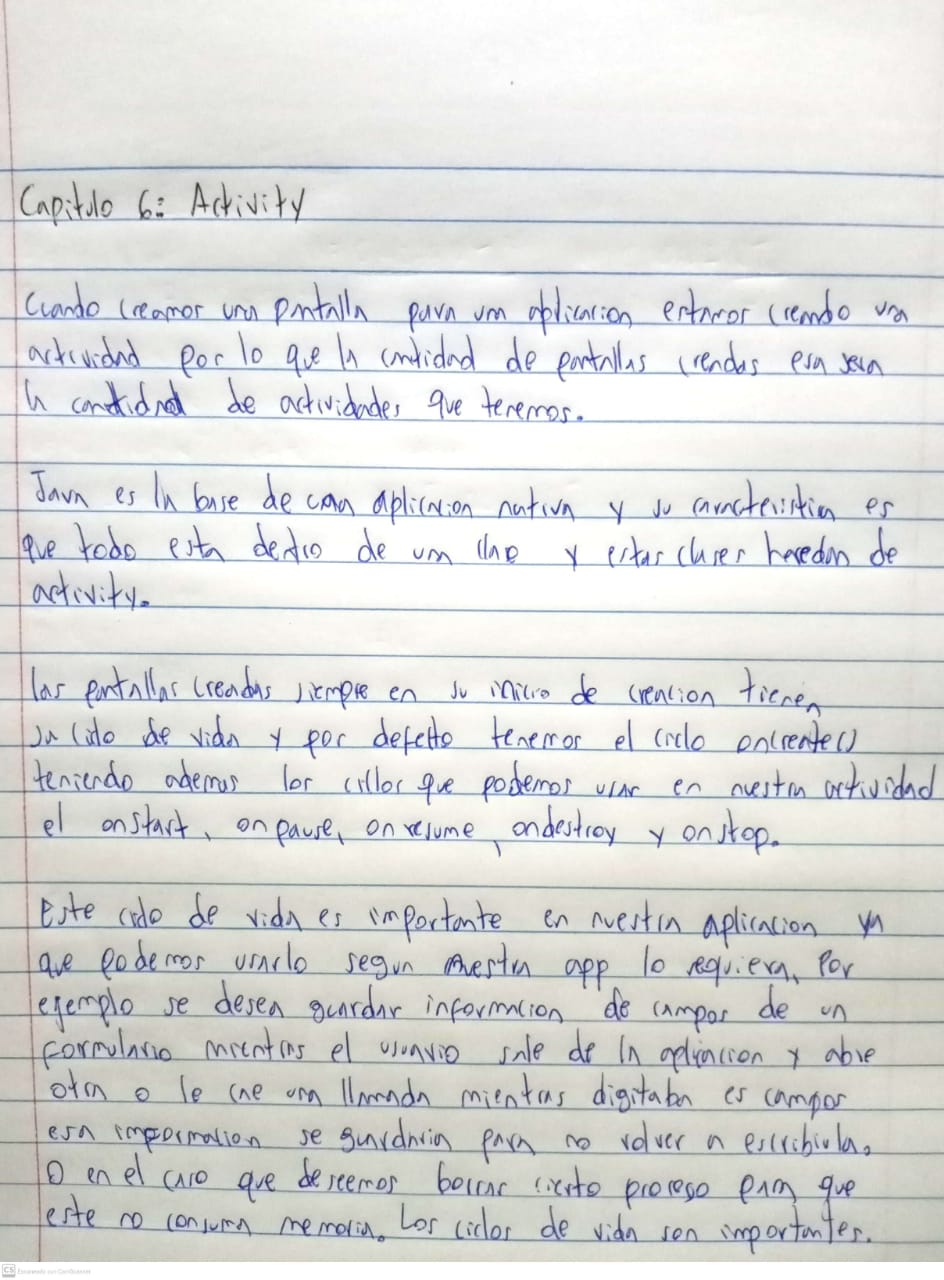 Capitulo 6: Activity
Cuando creamos una pantalla para una aplicacion estamos creando una
actividad por lo que la cantidad de pantallas creadas esa sera
la cantidad de actividades que tenemos.
Java es la base de una aplicacion nativa y su caracteristica es
que todo esta dentro de una clase y estas clases heredan de
activity.
las pantallas creadas siempre en su inicio de creacion tienen
su ciclo de vida y por defecto tenemos el ciclo oncreate()
teniendo ademas los ciclos que podemos usar en nuestra actividad
el onstart, onpause, onresume, ondestroy y onstop.
Este ciclo de vida es importante en nuestra aplicacion ya
que podemos usarlo segun nuestra app lo requiera. Por
ejemplo se desea guardar informacion de campos de un
formulario mientras el usuario sale de la aplicacion y abre
otra o le cae una llamada mientras digitaba es campos
esa informacion se guardaria para no volver a escribirla.
O en el caso que deseemos borrar cierto proceso para que
este no consuma memoria. Los ciclos de vida son importantes.
CS Escaneado con CamScanner